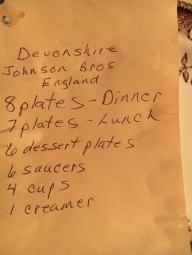 Devonshire
Johnson Bros
England
8 plates - Dinner
7 plates - Lunch
6 dessert plates
6 saucers
4 cups
1 creamer